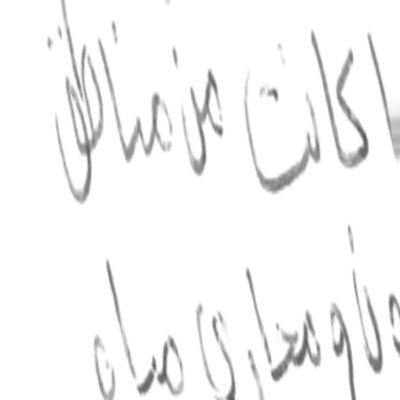 كانت من مناطق
و مجاري مياه